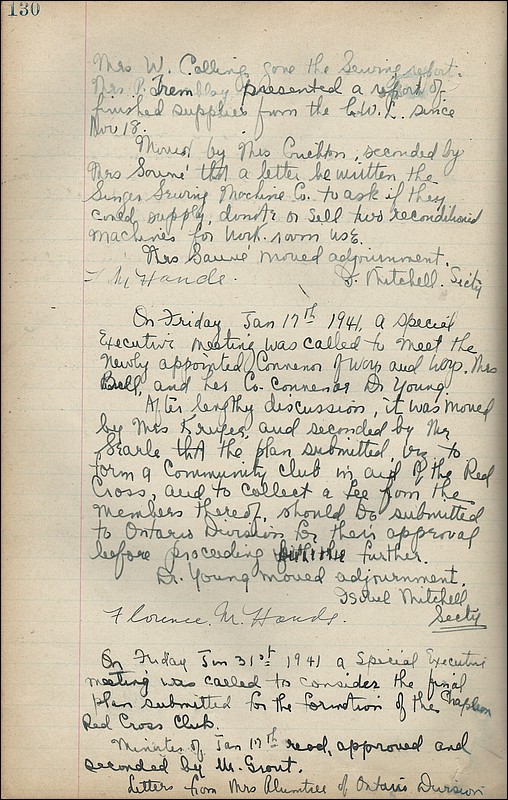 130
Mrs W. Colling gave the Sewing report.
Mrs P. Tremblay presented a report of
finished supplies from the C.W.L. since
Nov 18.
Moved by Mrs Crichton, seconded by
Mrs Sauvé that a letter be written the
Singer Sewing Machine Co. to ask if they
could supply, donate or sell two reconditioned
machines for work room use.
Mrs Sauvé moved adjournment.
F M Hands. I. Mitchell. Secty
On Friday Jan 17th 1941, a special
Executive meeting was called to meet the
newly appointed Convenor of Ways and Ways. Mrs
Bell, and her Co-Convenor Dr Young.
After lengthy discussion, it was moved
by Mrs Kruger, and seconded by Mr
Searle that the plan submitted, viz to
form a Community club in aid of the Red
Cross, and to collect a fee from the
members thereof should be submitted
to Ontario Division for their approval
before proceeding further.
Dr. Young moved adjournment.
Isabel Mitchell
Florence. M. Hands. Secty
On Friday Jan 31st 1941 a Special Executive
meeting was called to consider the final
plan submitted for the formation of the Chapleau
Red Cross Club.
Minutes of Jan 17th read, approved and
seconded by Mr. Grout.
Letters from Mrs Plumtree of Ontario Division